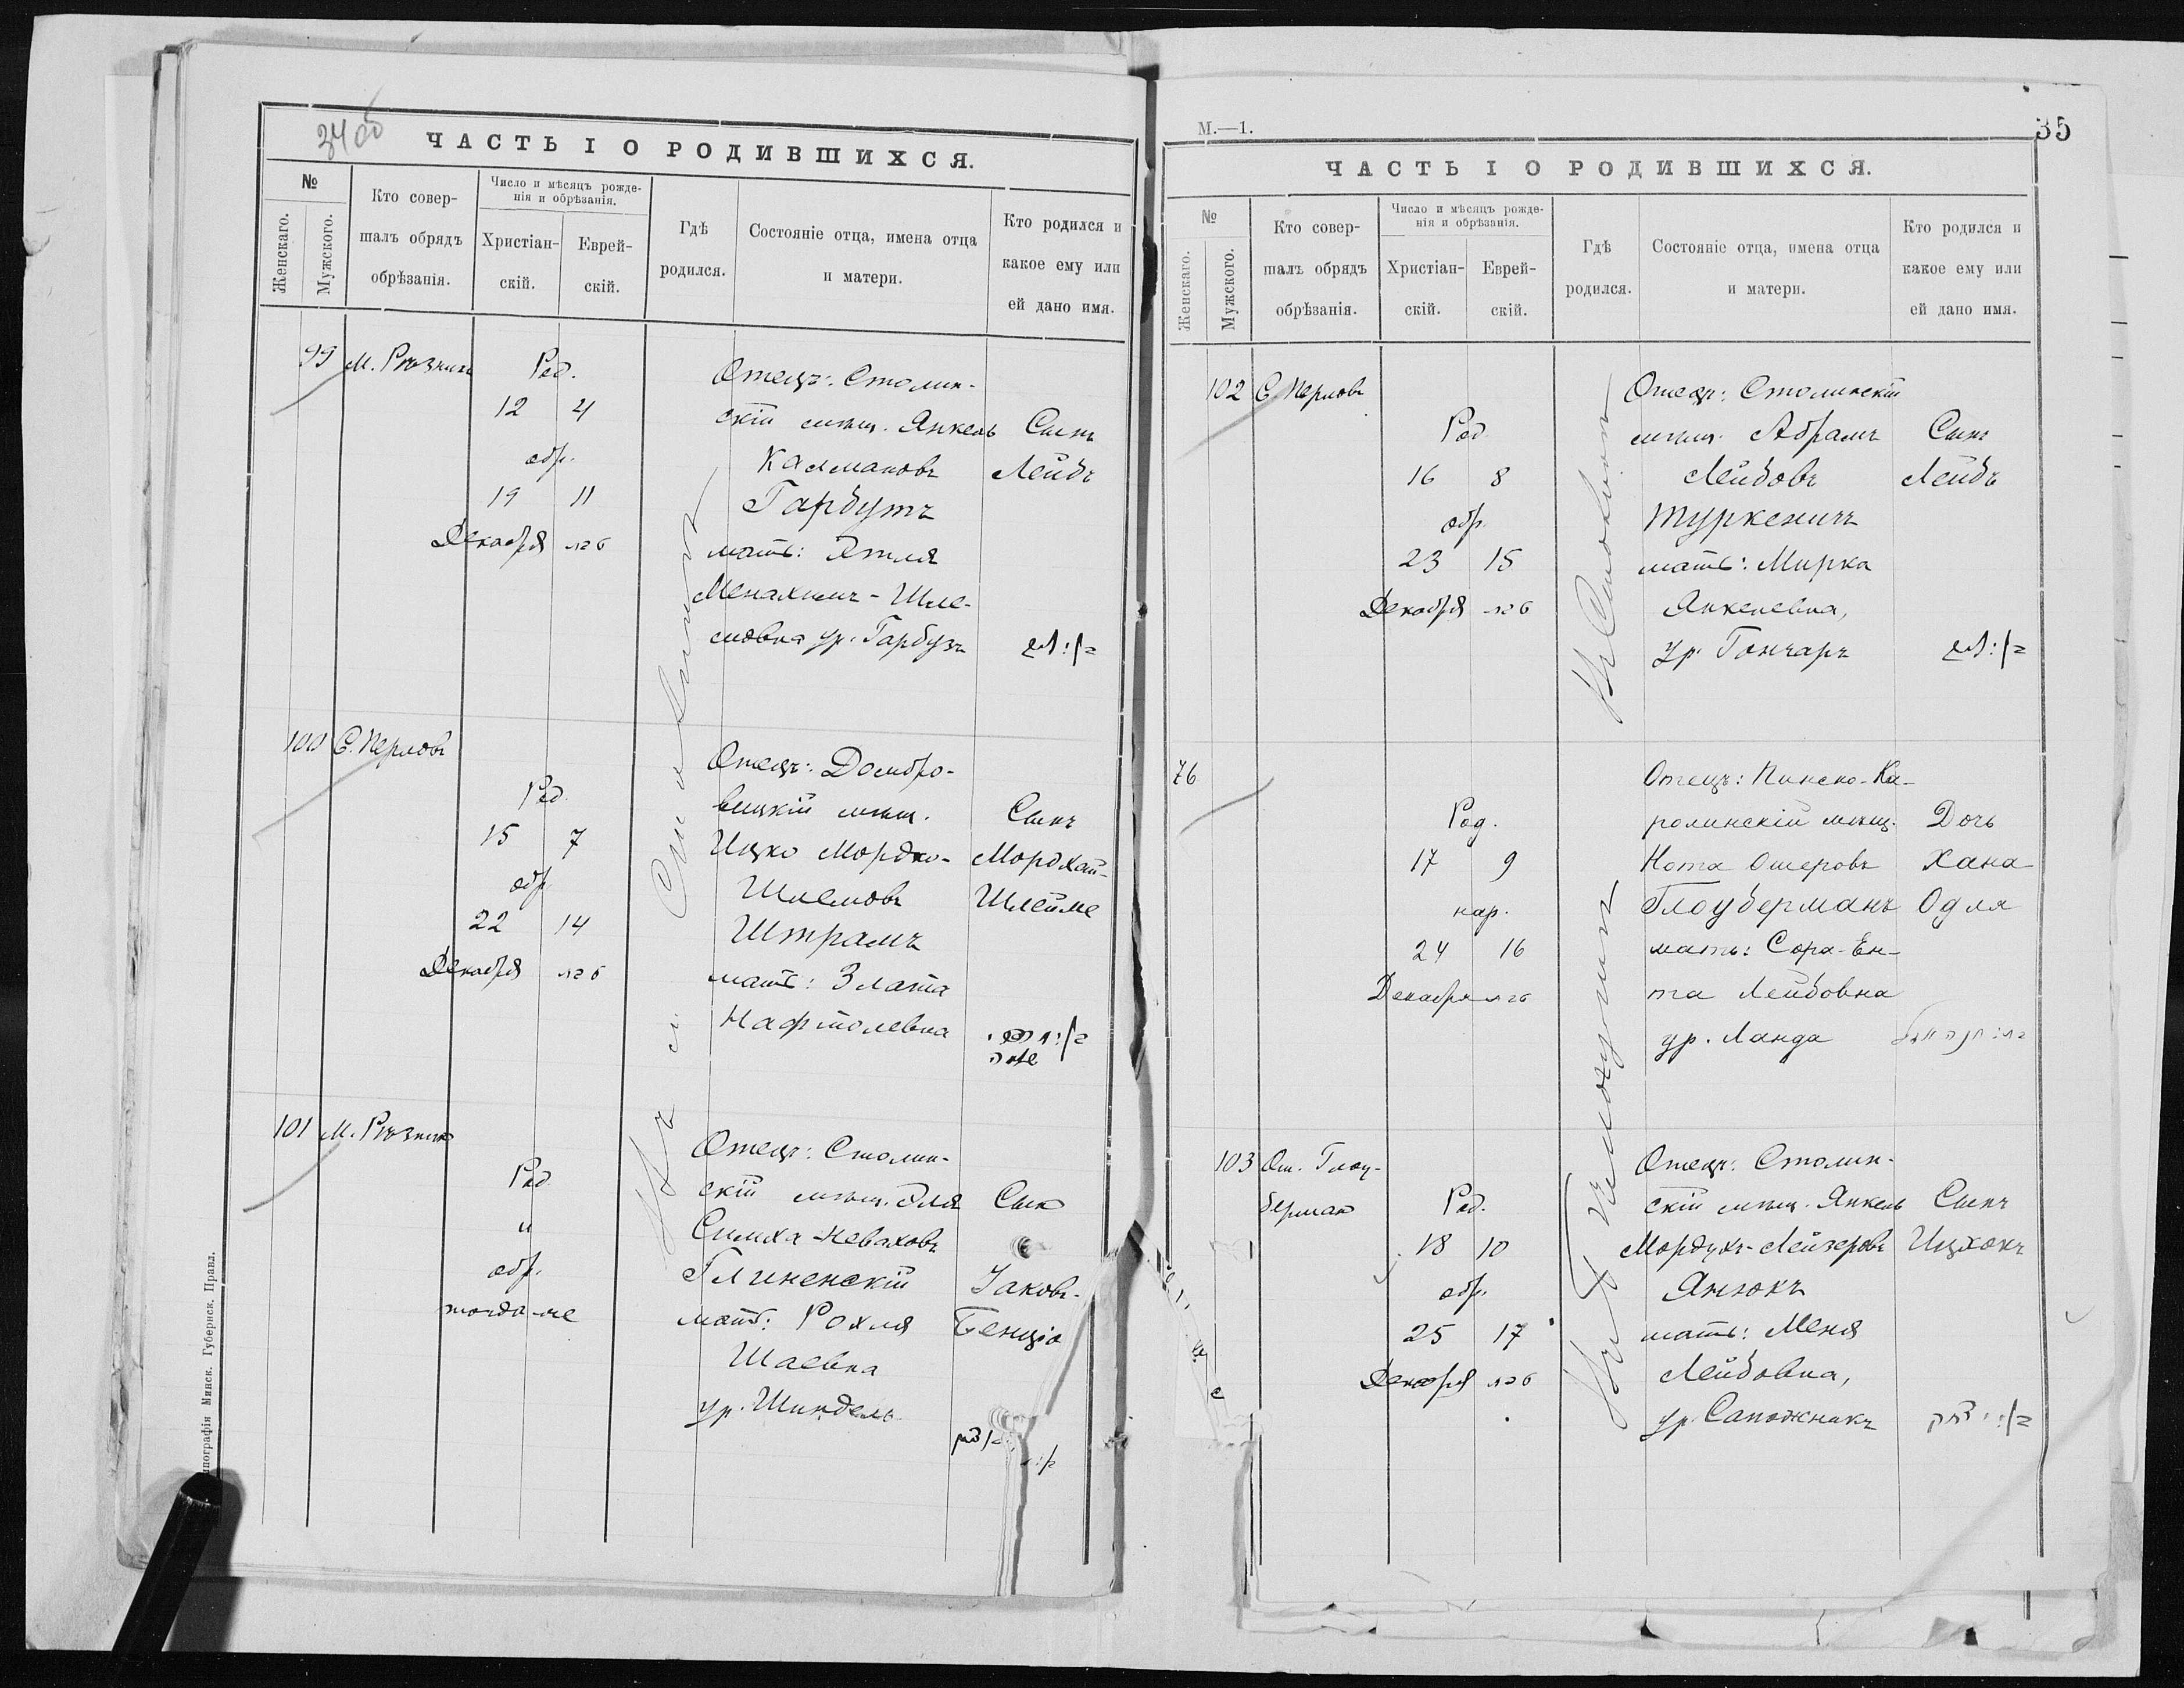 34об
ЧАСТЬ I О РОДИВШИХСЯ.
№
Женскаго.
Мужского.
Кто совер-
шалъ обрядъ
обрѣзанія.
Число и мѣсяцъ рожде-
нія и обрѣзанія.
Христіан-
скій.
Еврей-
скій.
Гдѣ
родился.
Состояніе отца, имена отца
и матери.
Кто родился и
какое ему или
ей дано имя.
99 М. Рѣзникъ
Род.
12 4
обр.
19 11
Декабря
Отецъ: Столин-
скій мѣщ. Янкель
Калмановъ
Гарбузъ
мать: Этля
Менахимъ-Шле-
мовна ур. Гарбузъ
Сынъ
Лейбъ
100 С. Перловъ
Род.
15 7
обр.
22 14
Декабря
Отецъ: Домбро-
вицкій мѣщ.
Ицко Мордко-
Шлемовъ
Штрамъ
мать: Злата
Нафтолевна
Сынъ
Мордхай-
Шлейме
101 М. Рѣзникъ
Род.
и
обр.
тогда-же
Отецъ: Столин-
скій мѣщ. Эля
Симха-Неваховъ
Глиненскій
мать: Рохля
Шаевна
ур. Шиндель
Сынъ
Іаковъ-
Бенціо
Въ м. Столинѣ
Типографія Минск. Губернск. Правл.
М.—1.
35
ЧАСТЬ I О РОДИВШИХСЯ.
№
Женскаго.
Мужского.
Кто совер-
шалъ обрядъ
обрѣзанія.
Число и мѣсяцъ рожде-
нія и обрѣзанія.
Христіан-
скій.
Еврей-
скій.
Гдѣ
родился.
Состояніе отца, имена отца
и матери.
Кто родился и
какое ему или
ей дано имя.
102 С. Перловъ
Род.
16 8
обр.
23 15
Декабря
Въ Столинѣ
Отецъ: Столинскій
мѣщ. Абрамъ
Лейбовъ
Туркеничъ
мать: Мирка
Янкелевна,
ур. Гончаръ
Сынъ
Лейбъ
76
Род.
17 9
нар.
24 16
Декабря
Отецъ: Пинско-Ка-
ролинскій мѣщ.
Нота Ошеровъ
Глоуберманъ
мать: Сора-Ен-
та Лейбовна
ур. Ланда
Дочь
Хана-
Одля
103 Ош. Глоу-
берман
Род.
18 10
обр.
25 17
Декабря
Отецъ: Столин-
скій мѣщ. Янкель
Мордухъ-Лейзеровъ
Янюкъ
мать: Меня
Лейбовна,
ур. Сапожникъ
Сынъ
Ицхокъ